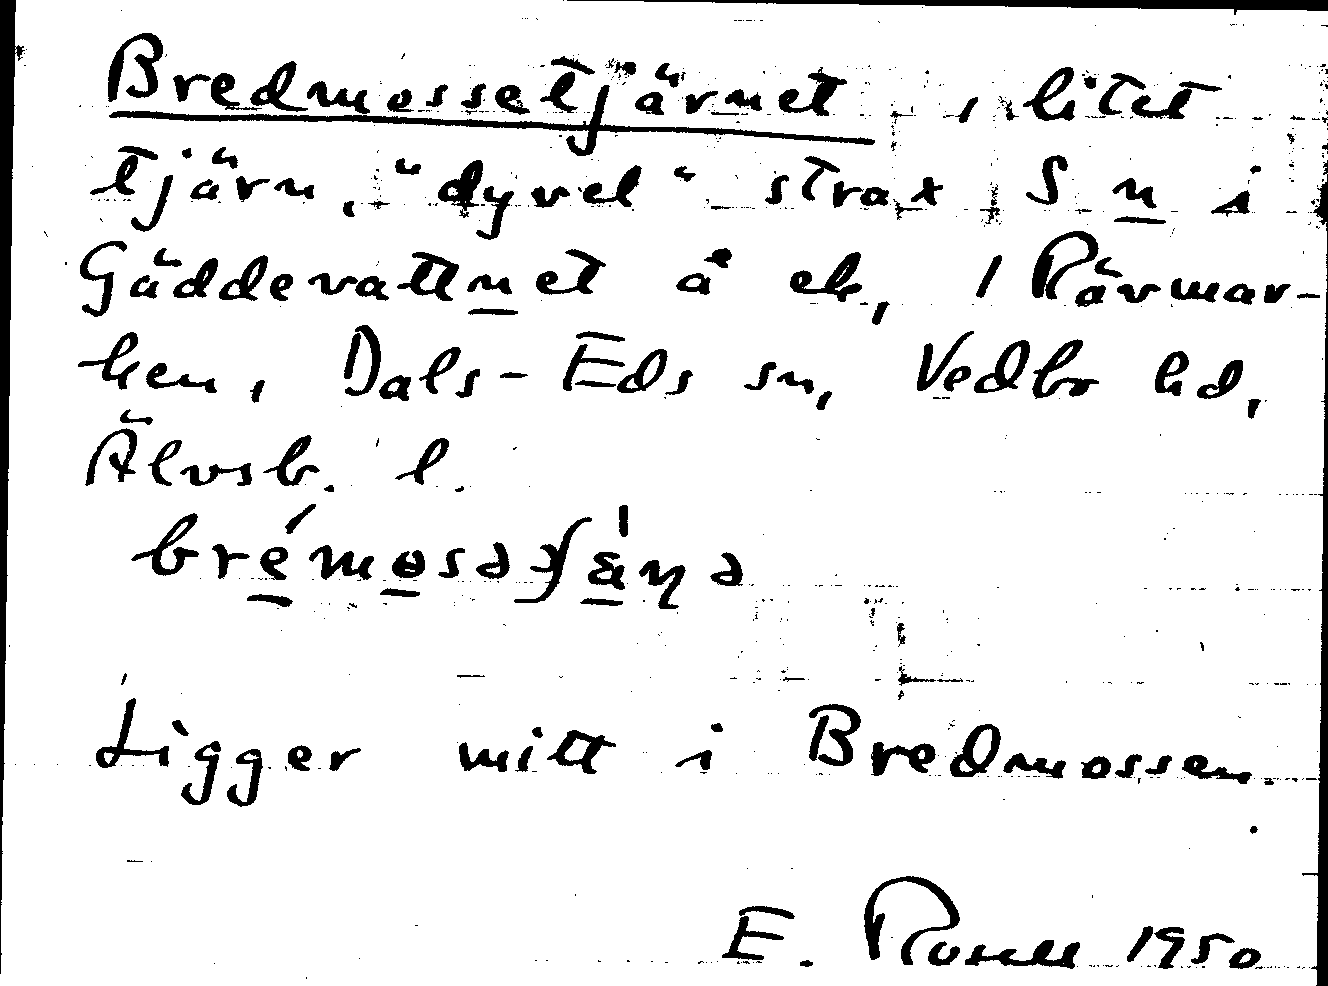 Bredmossetjärnet, litet
tjärn, "dyvel" strax S n i
Gäddevattnet å ek, 1 Rävmar-
ken, Dals-Eds sn, Vedbo hd,
Älvsb. l.
Ligger mitt i Bredmossen.
E. Rosell 1950